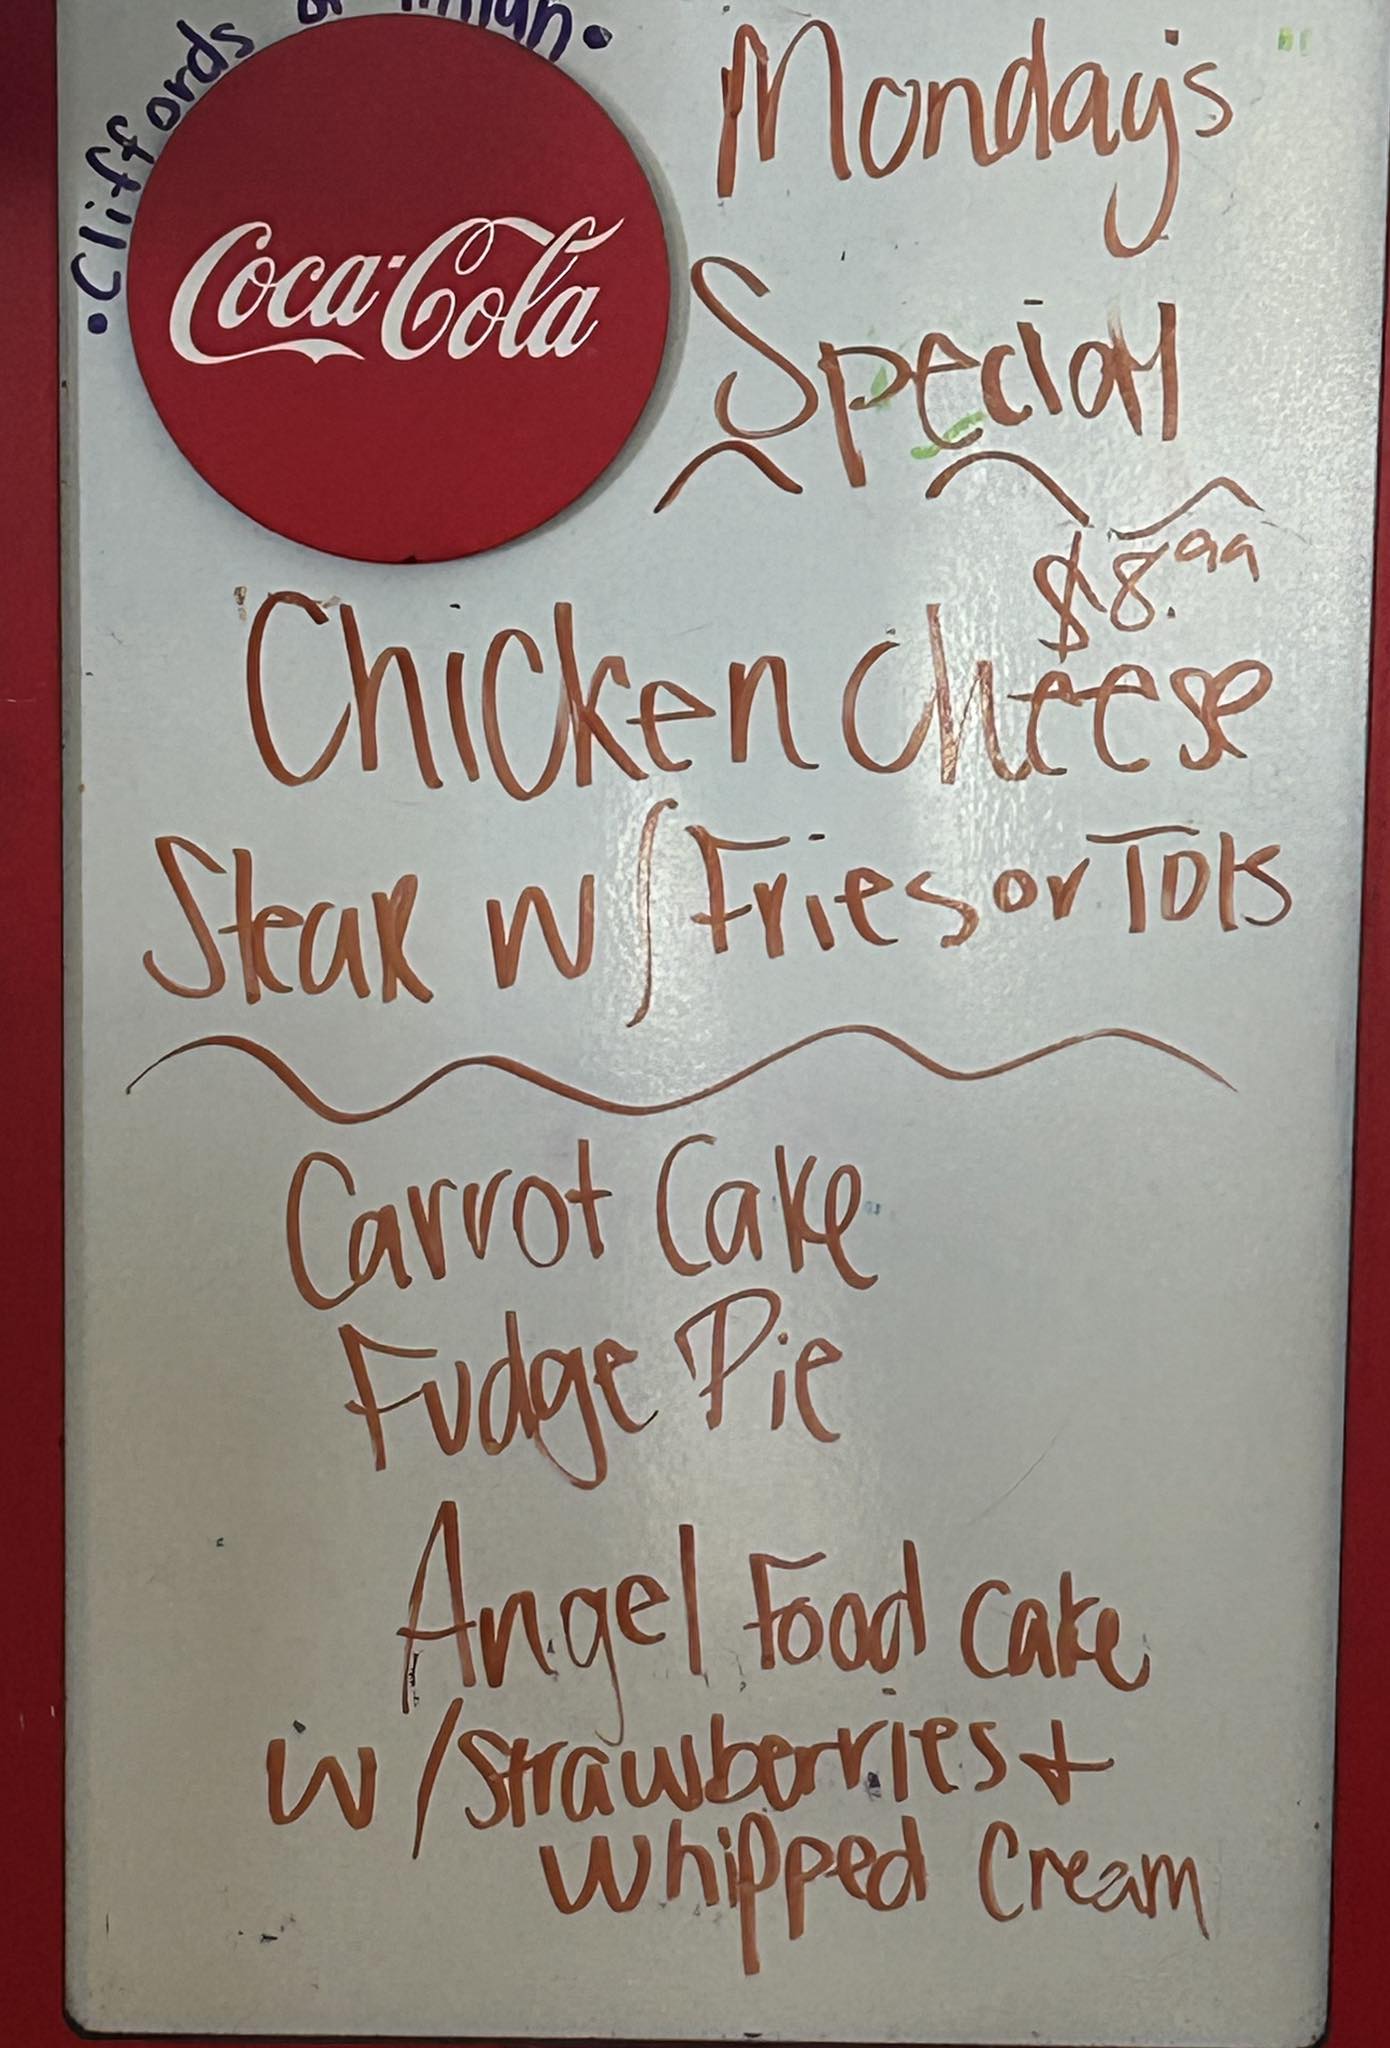 •Cliffords of
Coca-Cola
Monday's
Special
$8.99
Chicken Cheese
Steak w/ Fries or Tots
Carrot Cake
Fudge Pie
Angel Food Cake
w/ Strawberries +
Whipped Cream